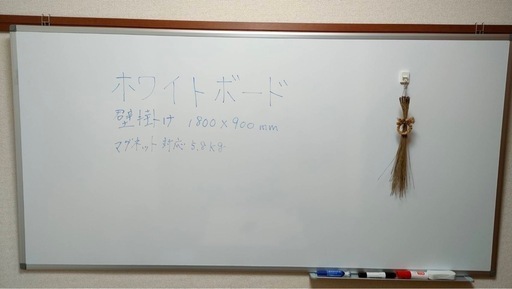 ホワイトボード
壁掛け 1800×900mm
マグネット対応 5.8kg